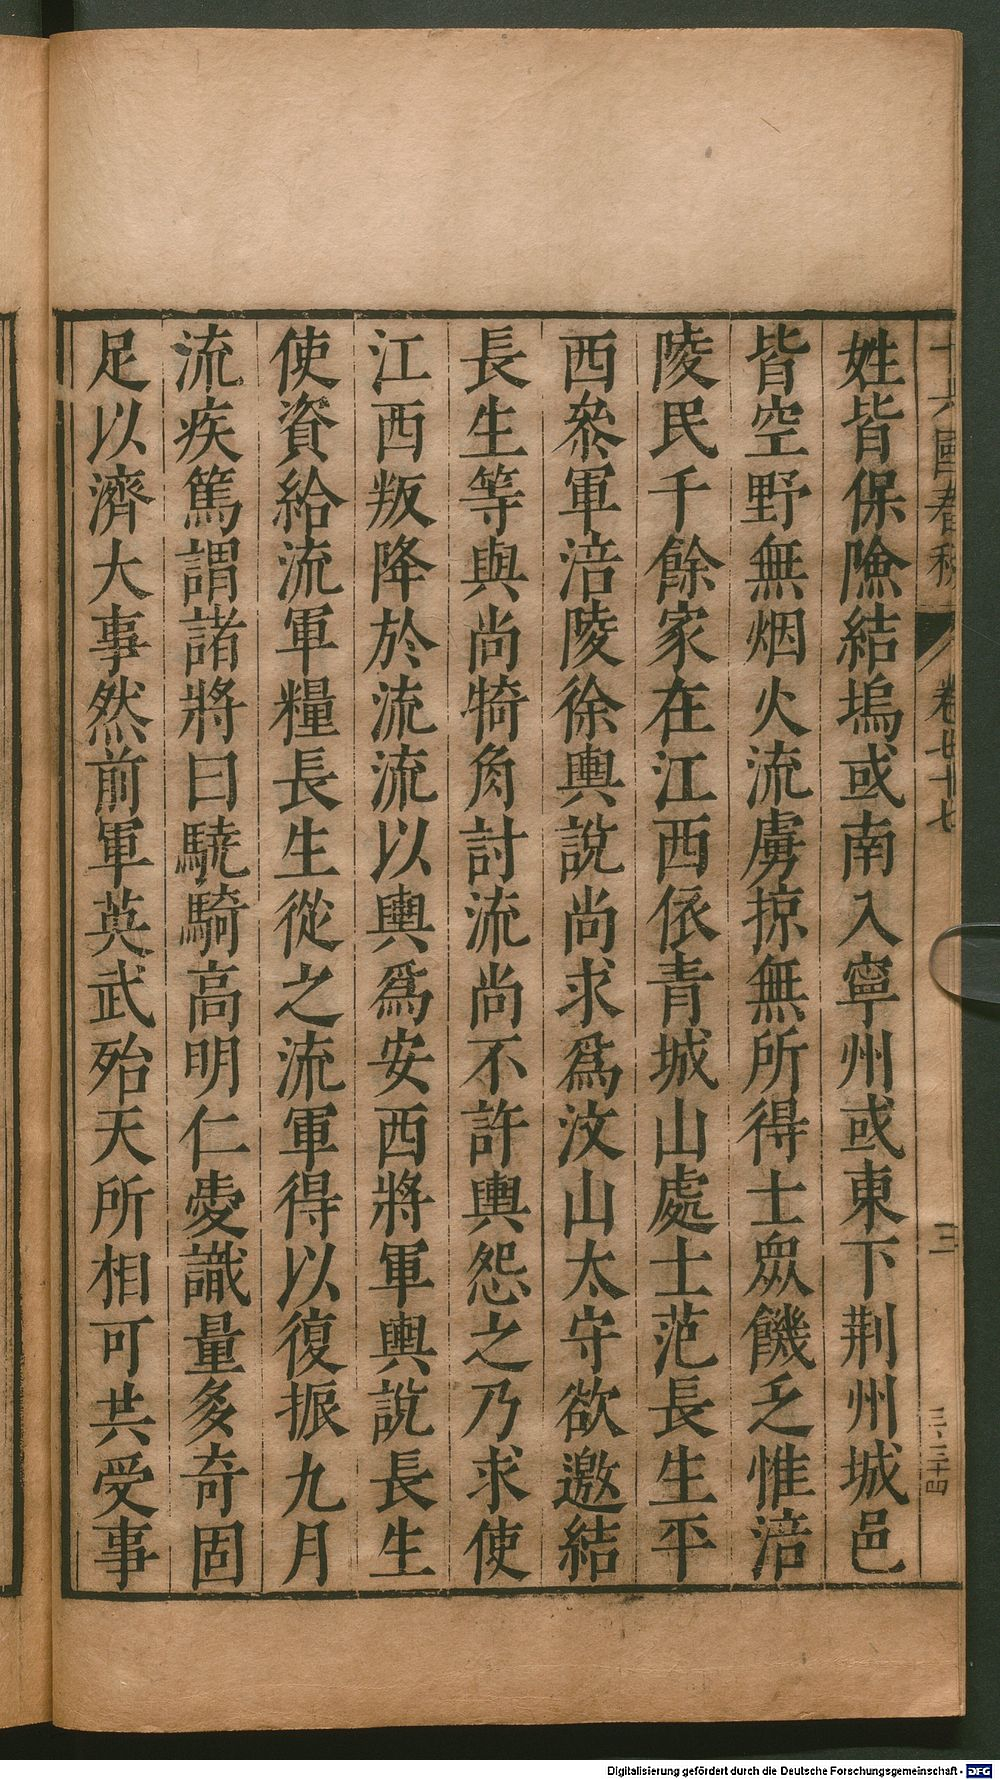 十六國春秋 卷七十七 三 三、三十四
姓皆保險結塢或南入寧州或東下荆州城邑
皆空野無烟火流虜掠無所得士衆饑乏惟涪
陵民千餘家在江西依青城山處士范長生平
西叅軍涪陵徐輿說尚求爲汶山太守欲邀結
長生等與尚犄角討流尚不許輿怨之乃求使
江西叛降於流流以輿爲安西將軍輿說長生
使資給流軍糧長生從之流軍得以復振九月
流疾篤謂諸將曰驍騎高明仁愛識量多奇固
足以濟大事然前軍英武殆天所相可共受事
Digitalisierung gefördert durch die Deutsche Forschungsgemeinschaft - DFG